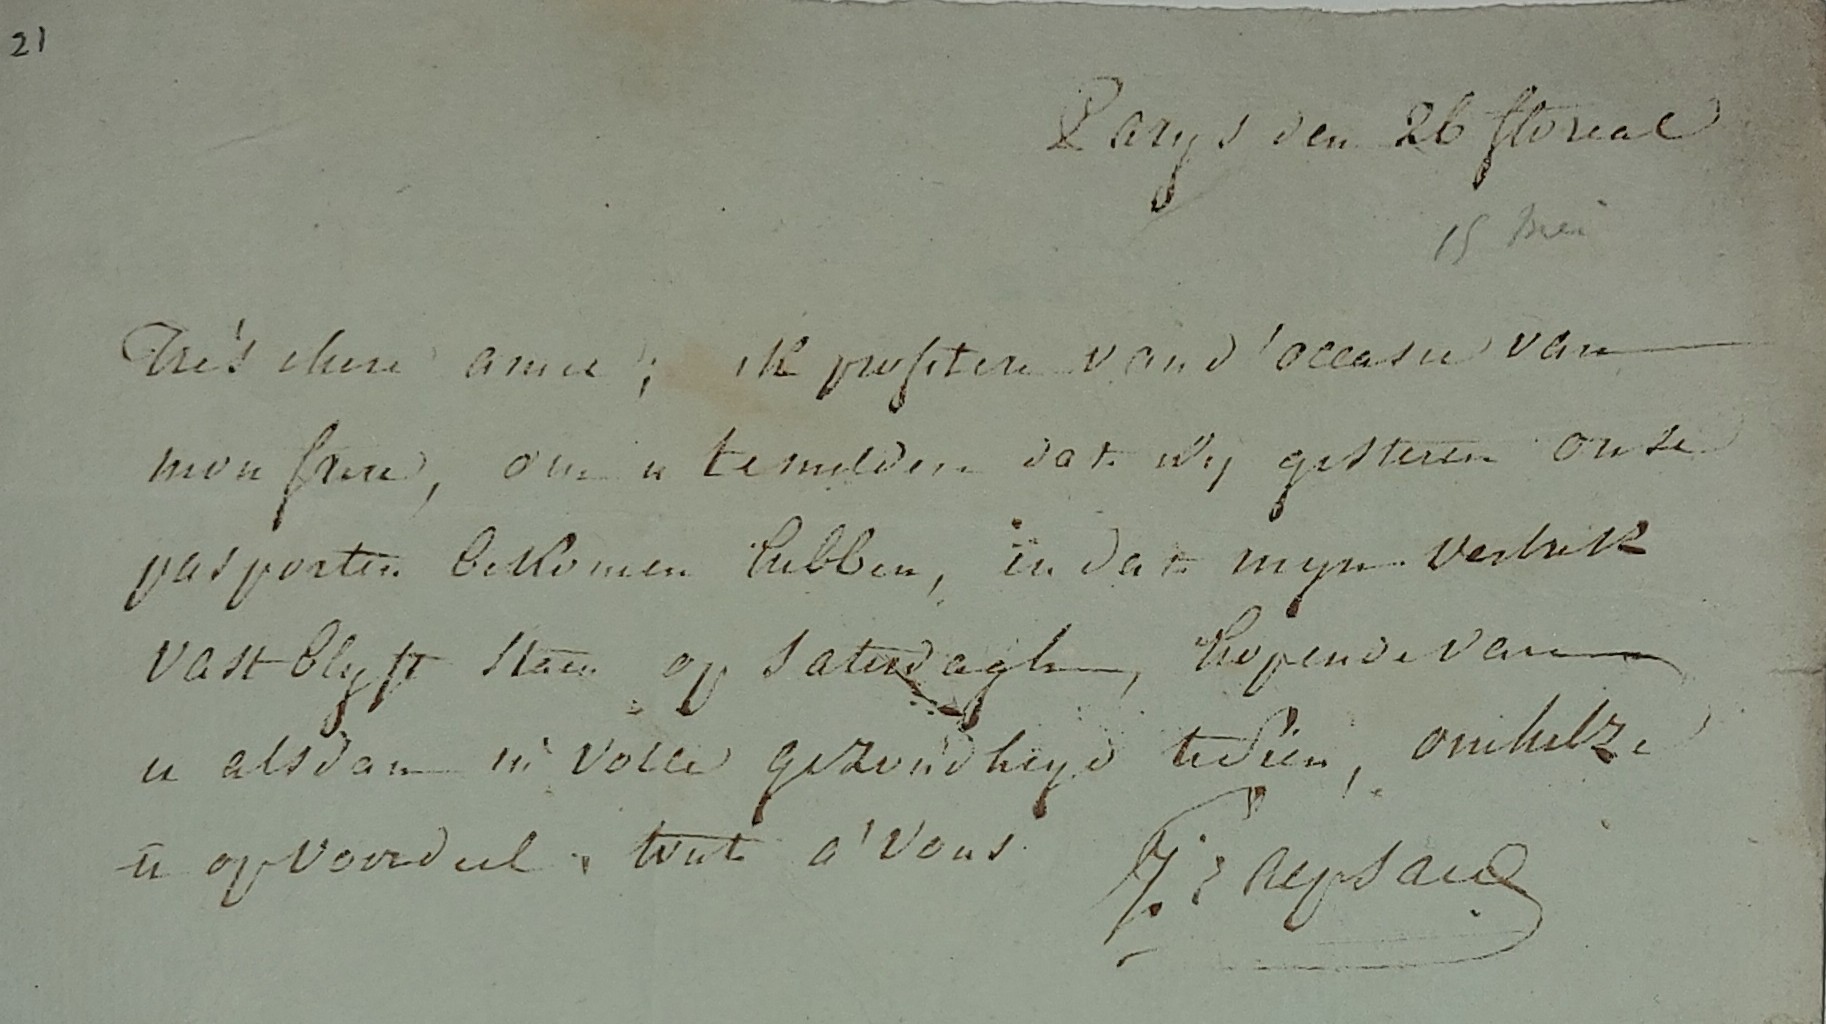 21
Parys den 26 floreal
15 mei
Tres chere amie; ik profitere van d'occasie van
mon frere, om u te melden dat wy gisteren onse
pasporten bekomen hebben, en dat myn vertrek
vast blyft staen op saterdagh, hopende van
u alsdan in volle gezondheyd te sien, omhelze
u op voordeel. tout a vous
J: Raepsaet